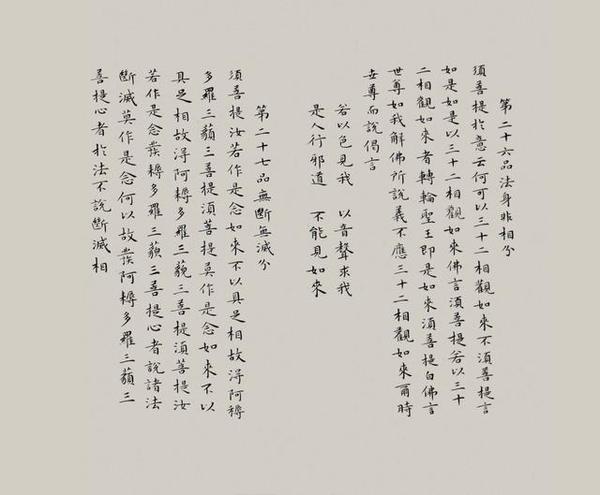 第二十六品法身非相分
須菩提於意云何可以三十二相觀如來不須菩提言
如是如是以三十二相觀如來佛言須菩提若以三十
二相觀如來者轉輪聖王即是如來須菩提白佛言
世尊如我解佛所說義不應三十二相觀如來爾時
世尊而說偈言
若以色見我 以音聲求我
是人行邪道 不能見如來
第二十七品無斷無滅分
須菩提汝若作是念如來不以具足相故得阿耨
多羅三藐三菩提須菩提莫作是念如來不以
具足相故得阿耨多羅三藐三菩提須菩提汝
若作是念發耨多羅三藐三菩提心者說諸法
斷滅莫作是念何以故發阿耨多羅三藐三
菩提心者於法不說斷滅相